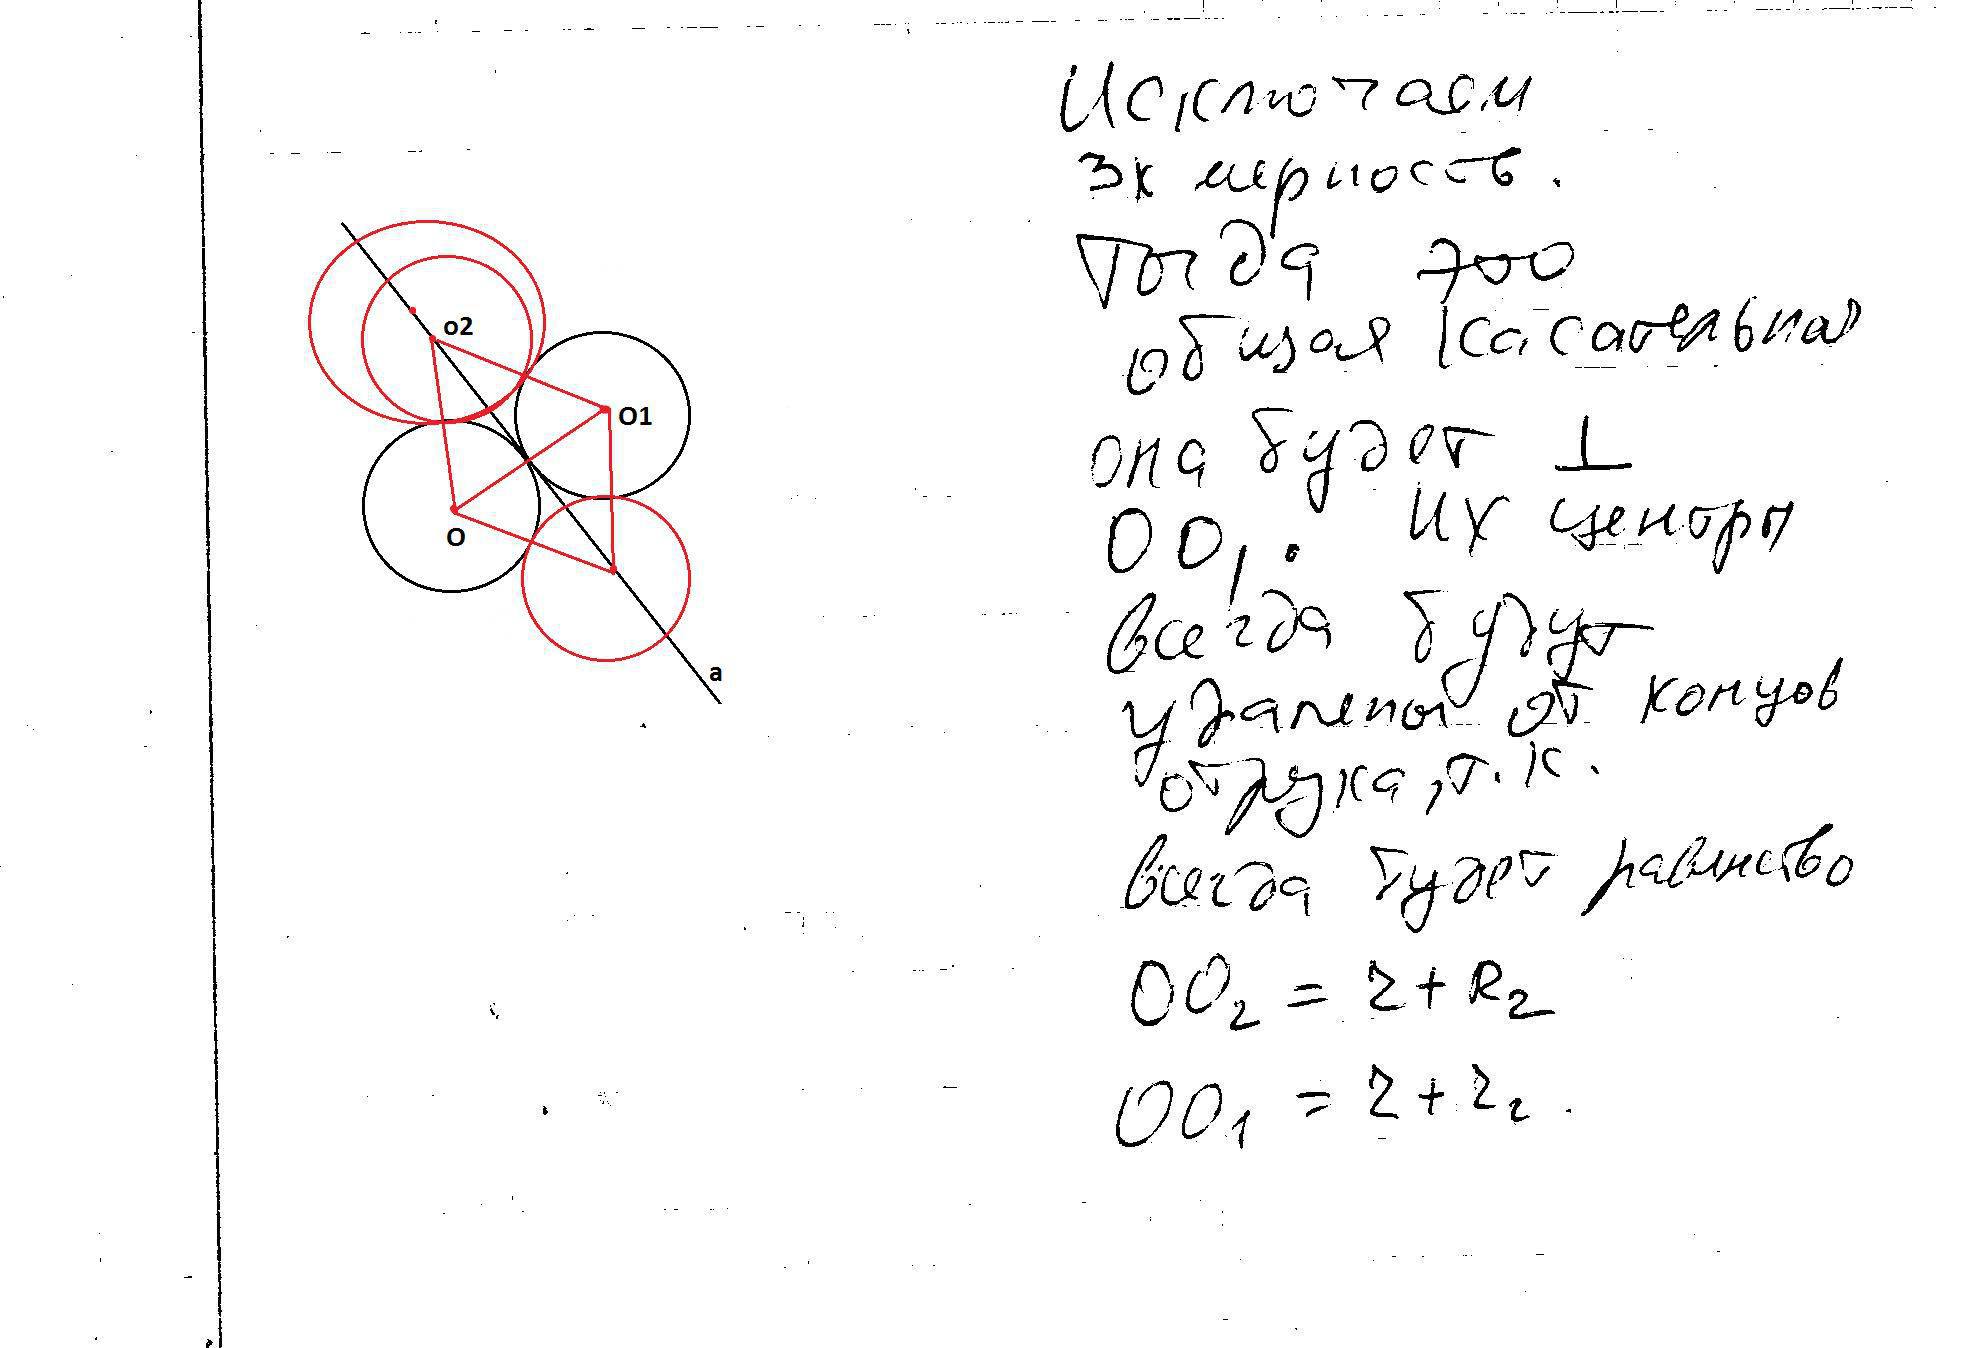 Исключаем
3х мерность.
Тогда это
общая касательная
она будет ⊥
OO₁. Их центры
всегда будут
удалены от концов
отрезка, т.к.
всегда будет равенство
OO₂ = r + R₂
OO₁ = r + r₂.
o2
O1
O
a